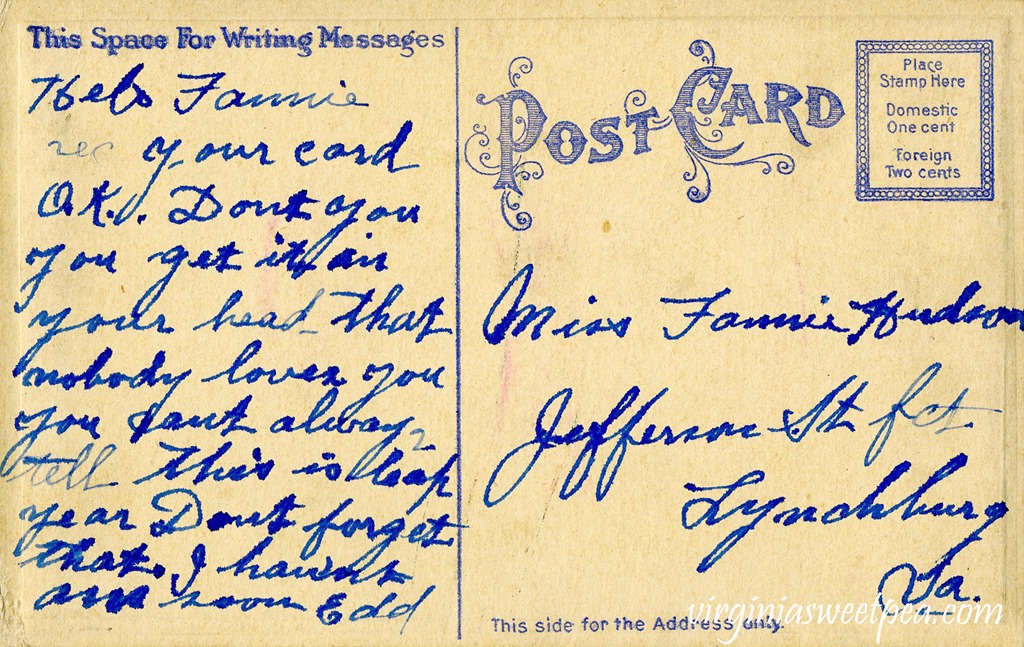 This Space For Writing Messages
Helo Fannie
rec your card
O.K. Dont you
you get it in
your head that
nobody loves you
you cant always
tell this is leap
year Dont forget
that. I havint
soon Edd
POST CARD
Place
Stamp Here
Domestic
One cent
Foreign
Two cents
Miss Fannie Hudson
Jefferson St
Lynchburg
Va.
This side for the Address only.
virginiasweetpea.com